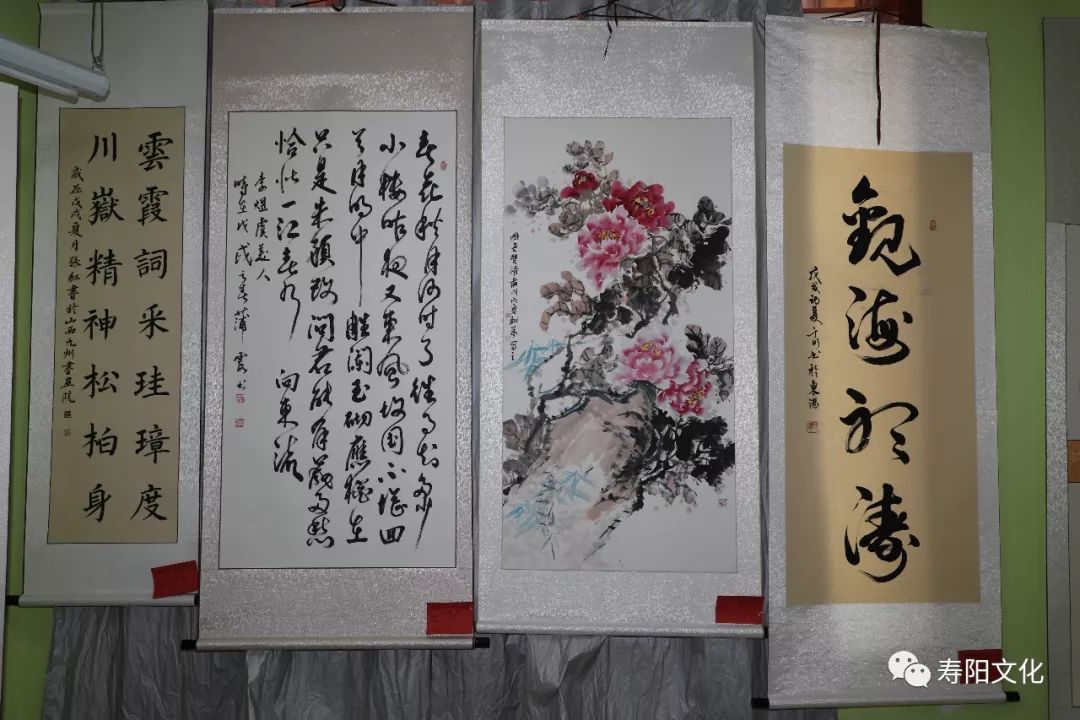 雲霞詞采珪璋度
川嶽精神松柏身
歲在戊戌夏月張紅書於山西九州書画院
春花秋月何时了往事知多少
小楼昨夜又東風故国不堪回
首月明中雕阑玉砌應猶在
只是朱顏改问君能有幾多愁
恰似一江春水向東流
李煜虞美人
時在戊戌之春蒲雲书
觀海聽濤
戊戌初夏
寿阳文化